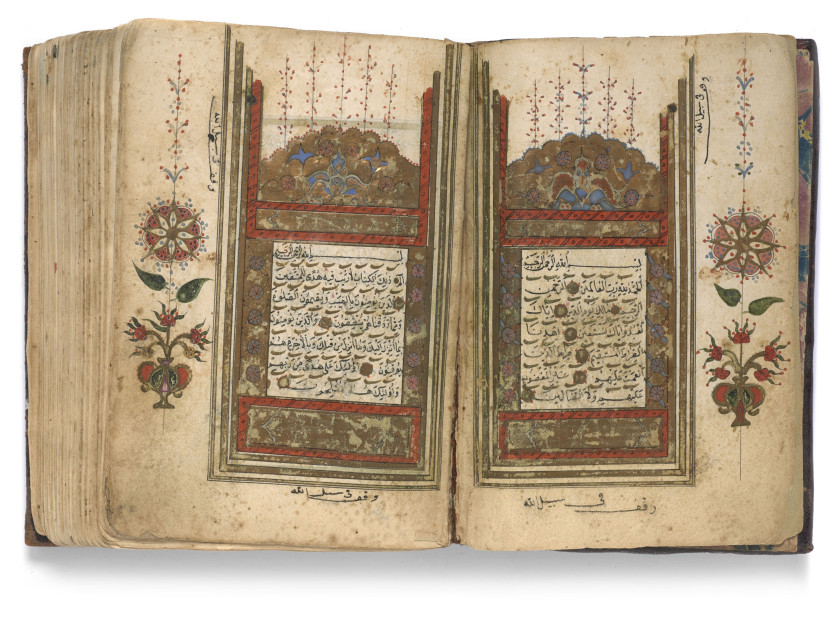 وقف في سبيل الله
بسم الله الرحمن الرحيم
الحمد لله رب العالمين الرحمن
الرحيم مالك يوم الدين اياك
نعبد واياك نستعين اهدنا
الصراط المستقيم صراط الذين
انعمت عليهم غير المغضوب
عليهم ولا الضالين
وقف في سبيل الله
وقف في سبيل الله
بسم الله الرحمن الرحيم
الم ذلك الكتاب لا ريب فيه هدى للمتقين
الذين يؤمنون بالغيب ويقيمون الصلوة
ومما رزقناهم ينفقون والذين يؤمنون
بما انزل اليك وما انزل من قبلك وبالاخرة هم
يوقنون اولئك على هدى من ربهم
واولئك هم المفلحون
وقف في سبيل الله